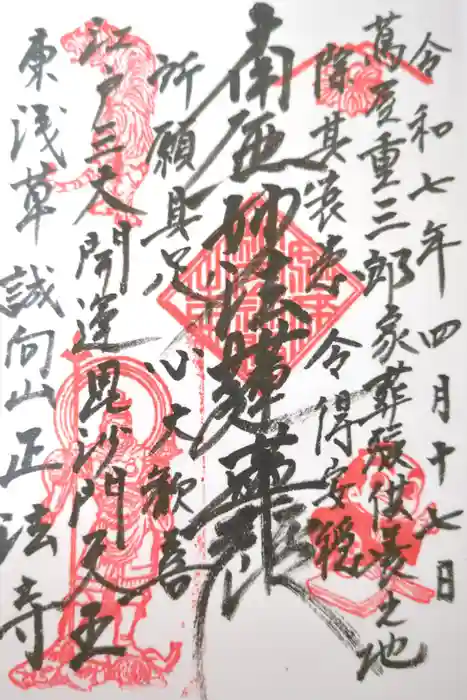 令和七年四月十七日
蔦屋重三郎家菩提供養之地
除其衰患令得安穏
南無妙法蓮華経
所願具足心大歓喜
江戸三大開運毘沙門天王
東浅草 誠向山正法寺